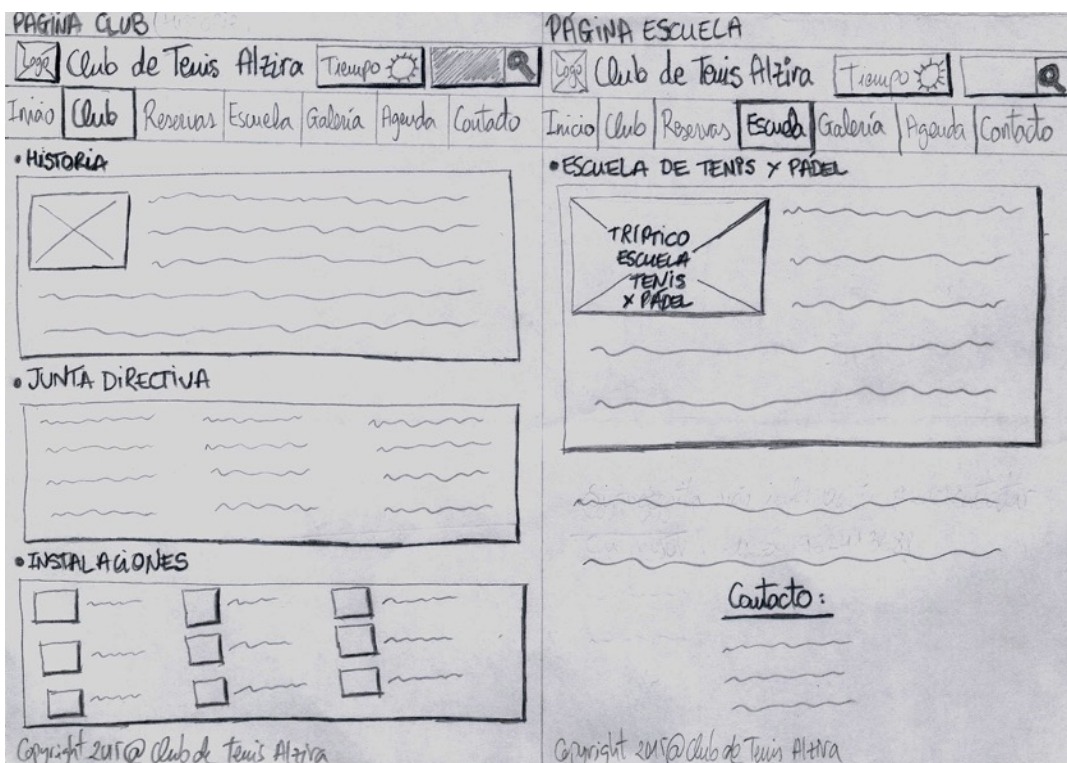 PÁGINA CLUB
Logo Club de Tenis Alzira Tiempo
Inicio Club Reservas Escuela Galería Agenda Contacto
• HISTORIA
• JUNTA DIRECTIVA
• INSTALACIONES
Copyright 2015@ Club de Tenis Alzira
PÁGINA ESCUELA
Logo Club de Tenis Alzira Tiempo
Inicio Club Reservas Escuela Galería Agenda Contacto
• ESCUELA DE TENIS Y PÁDEL
TRÍPTICO
ESCUELA
TENIS
Y PÁDEL
Contacto:
Copyright 2015@ Club de Tenis Alzira